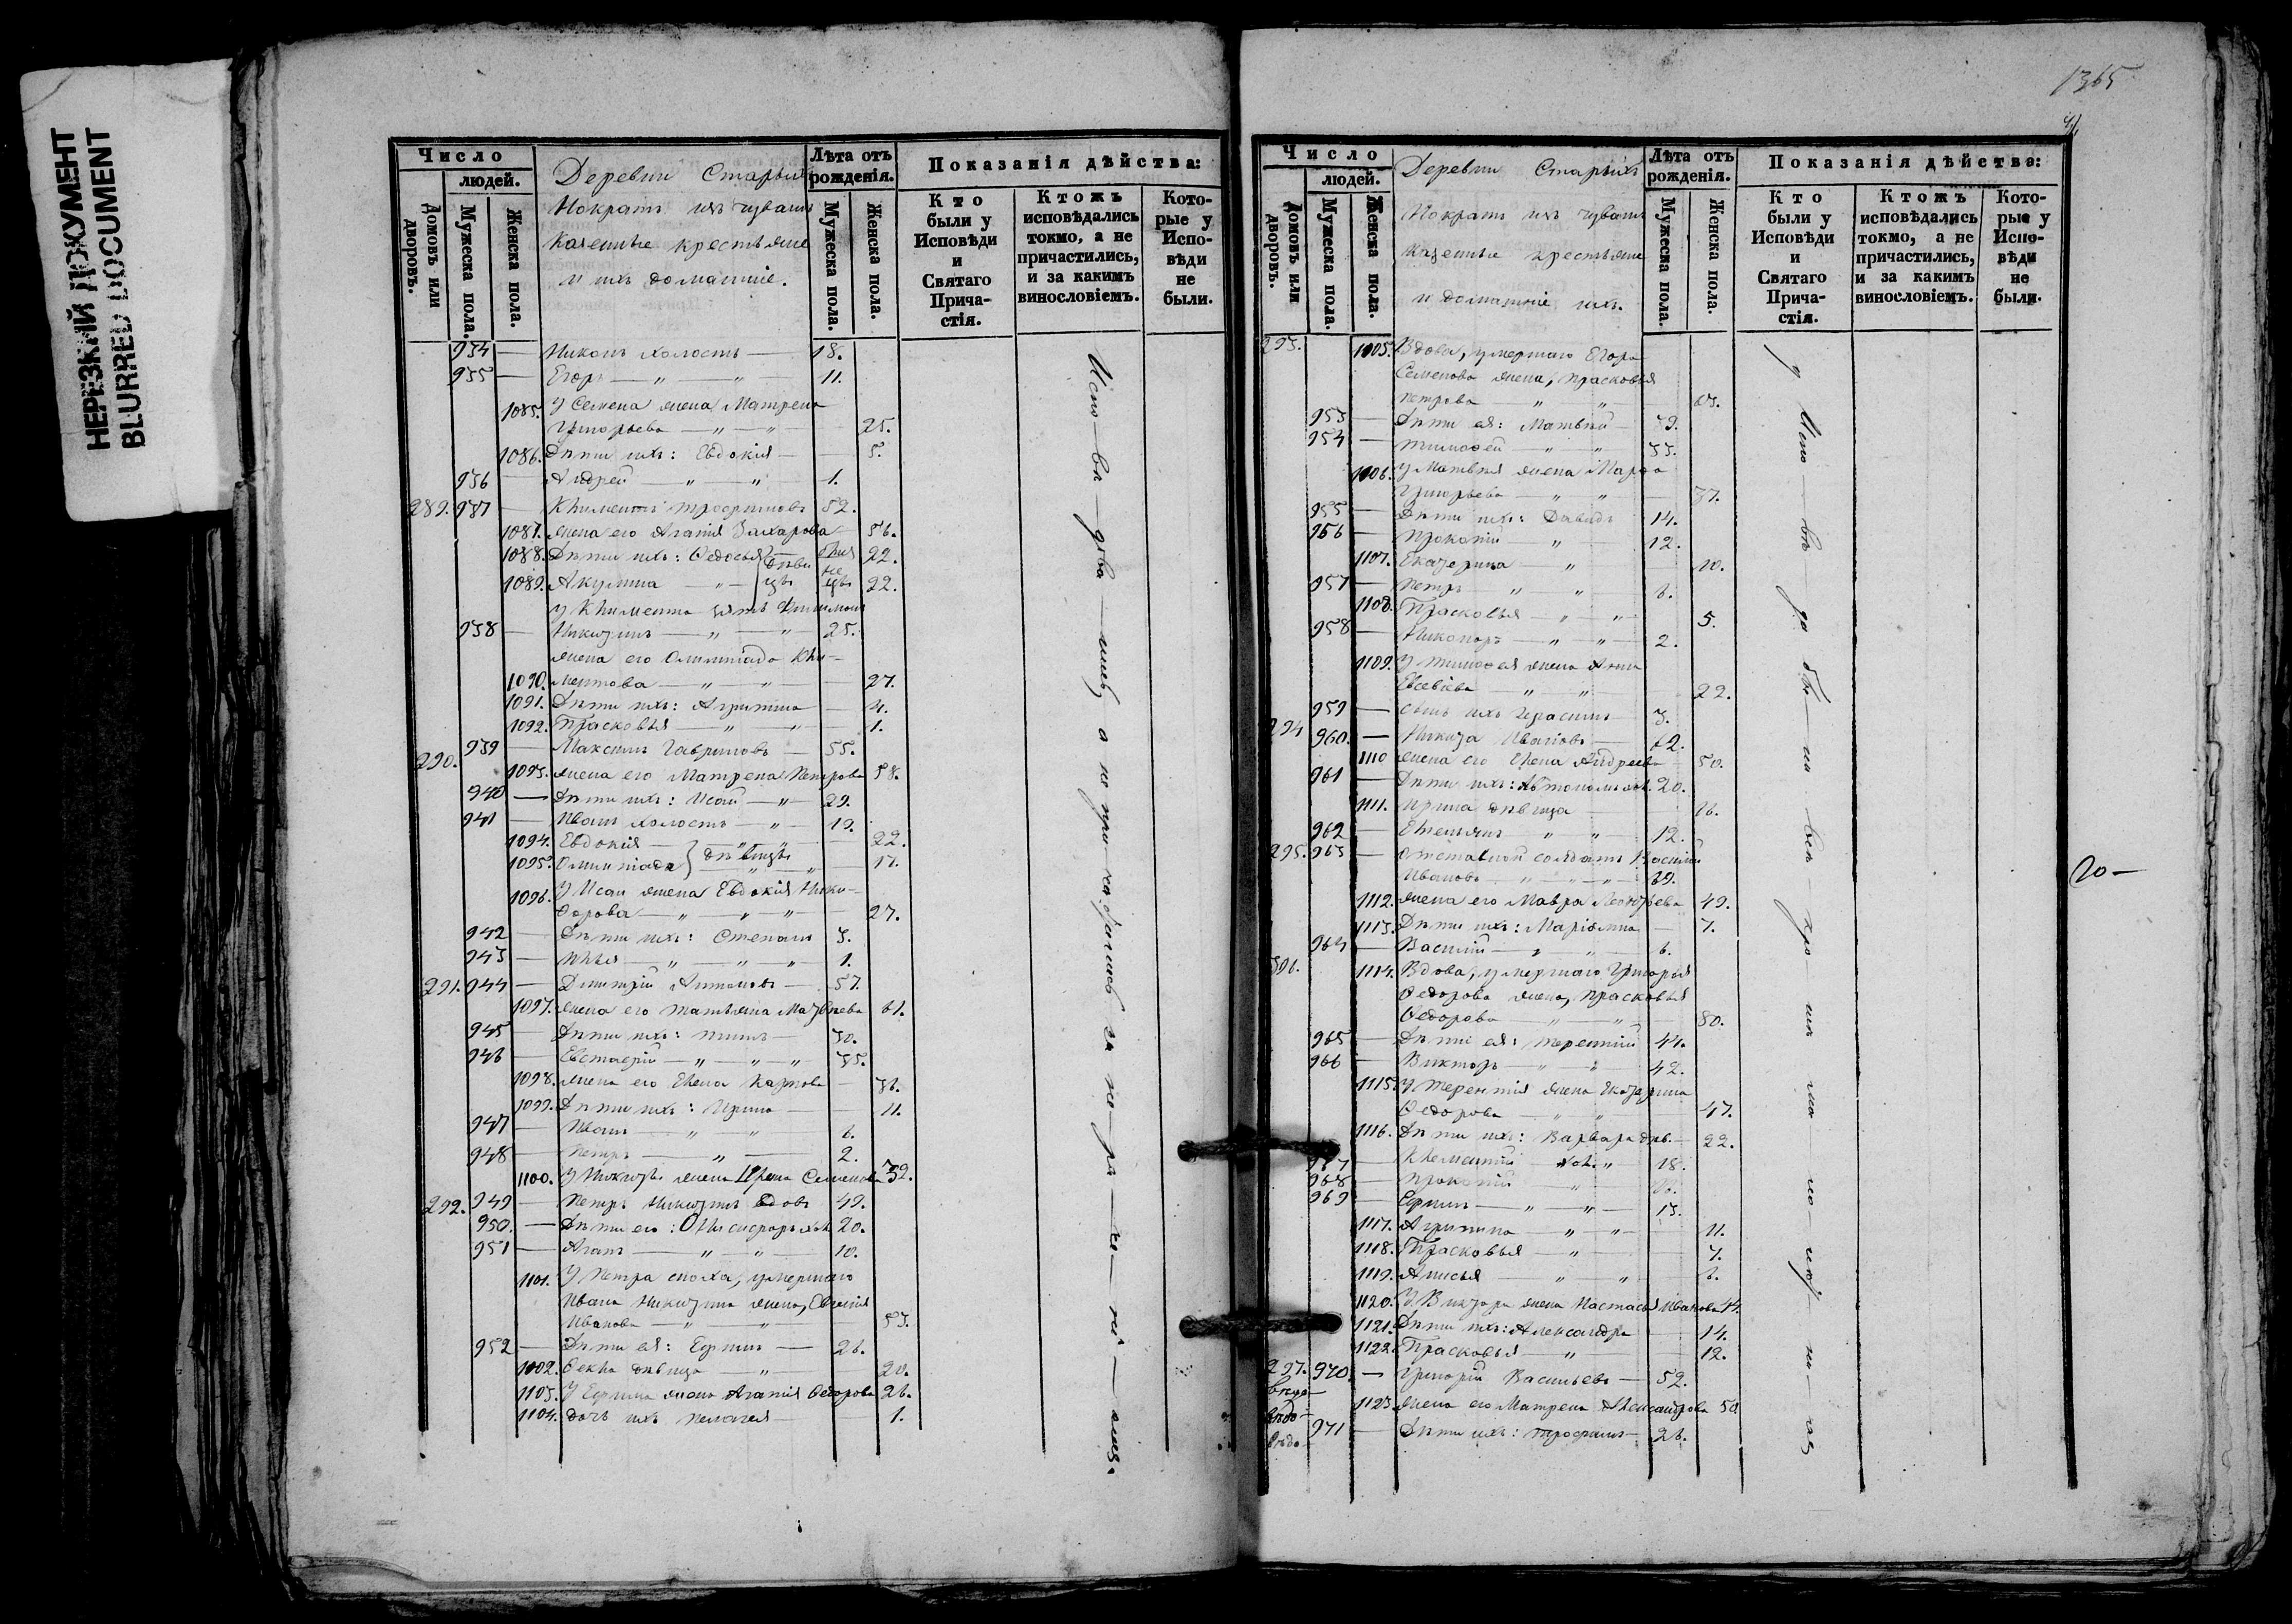 НЕРЕЗКИЙ ДОКУМЕНТ
BLURRED DOCUMENT
Число
людей.
Домовъ или дворовъ.
Мужеска пола.
Женска пола.
Деревни Старыхъ
Мократъ изъ чувашъ
казенные крестьяне
и ихъ домашніе.
Лѣта отъ рожденія.
Мужеска пола.
Женска пола.
Показанія дѣйства:
Кто были у Исповѣди и Святаго Причастія.
Ктожъ исповѣдались токмо, а не причастились, и за какимъ винословіемъ.
Которые у Исповѣди не были.
934 — Никонъ холостъ — 18.
935 — Егоръ — „ — „ — 11.
1085. У Семена жена Матрена
Григорьева — „ — „ — 25.
1086. Дѣти ихъ: Евдокія — 5.
936 — Андрей — „ — „ 1.
289. 937 — Климентій Трофимовъ 52.
1087. жена его Агапія Захарова 56.
1088. Дѣти ихъ: Ѳедосья 22.
1089. Акулина — „ — 22.
У Климента зять
938 — Никитинъ — „ — „ 25.
жена его Олимпіада Кли-
1090. ментова — „ — „ — 27.
1091. Дѣти ихъ: Агрипина — 4.
1092. Прасковья — „ — „ 1.
290. 939 — Максимъ Гавриловъ — 55.
1093. жена его Матрена Петрова 58.
940 — Дѣти ихъ: Исай — „ — 29.
941 — Иванъ холостъ — „ — 19.
1094. Евдокія — 22.
1095. Олимпіада } дѣвицы — 17.
1096. У Исаи жена Евдокія Ники-
форова — „ „ — „ — 27.
942 — Дѣти ихъ: Степанъ 3.
943 — Илья — „ — „ — „ 1.
291. 944 — Дмитрій Антоновъ — 57.
1097. жена его Татьяна Матвѣева 61.
945 — Дѣти ихъ: Титъ — 30.
946 — Евстафій — „ — „ — „ 35.
1098. жена его Елена Карпова — 36.
1099. Дѣти ихъ: Ирина — 11.
947 — Иванъ — „ — „ 6.
948 — Петръ — „ — 2.
1100. У Никиты жена Ирина Семенова 32.
292. 949 — Петръ Никитинъ вдовъ 49.
950. — Дѣти его: Никифоръ хол. 20.
951 — Агапъ — „ — „ — 10.
1101. У Петра сноха, умершаго
Ивана Никитина жена,
Иванова — „ — „ 53.
952 — Дѣти ея: Ефимъ — 26.
1102. Ѳекла дѣвица — „ — 20.
1103. У Ефима жена Агапія Ѳедорова 26.
1104. дочь ихъ Пелагея — 1.
Испо-вѣ-дова-лись, а не при-ча-стились за не-ра-че-ні-
1365
Число
людей.
Домовъ или дворовъ.
Мужеска пола.
Женска пола.
Деревни Старыхъ
Мократъ изъ чувашъ
казенные крестьяне
и домашніе ихъ.
Лѣта отъ рожденія.
Мужеска пола.
Женска пола.
Показанія дѣйства:
Кто были у Исповѣди и Святаго Причастія.
Ктожъ исповѣдались токмо, а не причастились, и за какимъ винословіемъ.
Которые у Исповѣди не были.
293. 1105. Вдова, умершаго Егора
Семенова жена, Прасковья
Петрова „ — „ — 63.
953 — Дѣти ея: Матвѣй — 39.
954 — Тимоѳей — „ — „ 33.
1106. У Матвѣя жена Марѳа
Григорьева — „ „ — 37.
955 — Дѣти ихъ: Давидъ 14.
956 — Прокопій — „ — 12.
1107. Екатерина — „ 10.
957 — Петръ — „ — „ 6.
1108. Прасковья — „ — „ 5.
958 — Никаноръ — „ — „ — 2.
1109. У Тимоѳея жена Анна
Евсевіева — „ — „ 22.
959 — сынъ ихъ Герасимъ — 3.
294 960. — Никита Ивановъ — 62.
1110 жена его Елена Андреева 50.
961 — Дѣти ихъ: Автономъ хол. 20.
1111. Ирина дѣвица — 16.
962 — Емельянъ „ — „ — 12.
295. 963 — отставной солдатъ Василій
Ивановъ — „ — „ — „ — 69.
1112. жена его Мавра 49.
1113. Дѣти ихъ: Маріанна — 7.
964 — Василій — „ — „ 6.
296. 1114. Вдова, умершаго Григорья
Ѳедорова жена, Прасковья
Ѳедорова — „ — „ — 80.
965 — Дѣти ея: Терентій 44.
966 — Викторъ — „ — „ 42.
1115 У Терентія жена Екатерина
Ѳедорова — „ — „ 47.
1116. Дѣти ихъ: Варвара дѣв. — 22.
967 — Климентій хол. „ 18.
968 — Прокопій — „
969 — Ефимъ — „ — „ — 13.
1117. Агрипина — „ — „ 11.
1118. Прасковья — „ 7.
1119. Анисья — „ — „ 6.
1120. У Виктора жена Настасья Иванова 44.
1121. Дѣти ихъ: Александра — 14.
1122. Прасковья — „ 12.
297. 970. — Григорій Васильевъ — 52.
1123 жена его Матрена Александрова 50
971 — Дѣти ихъ: Трофимъ — 26.
20 —